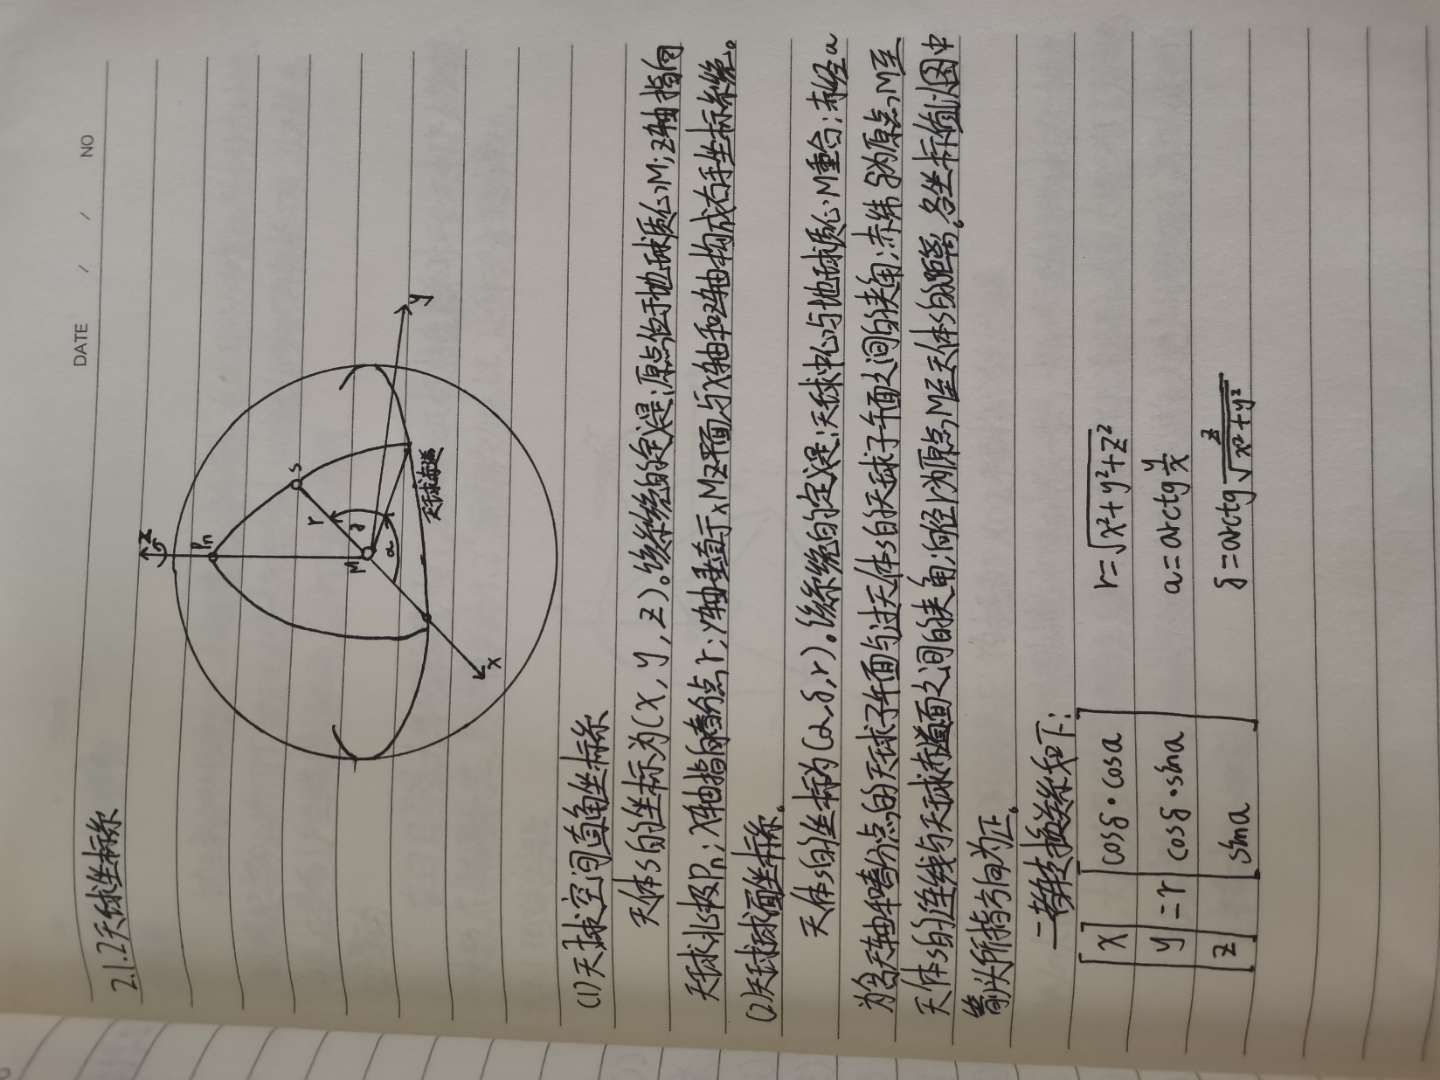 DATE / / NO
2.1.2天球坐标系
z
Pn
S
r
M
δ
α
y
天球赤道
x
(1)天球空间直角坐标系
天体S的坐标为(x,y,z)。该系统的定义是:原点位于地球质心M;z轴指向
天球北极Pn;x轴指向春分点r;y轴垂直于xMz平面与x轴和z轴构成右手坐标系统。
(2)天球球面坐标系。
天体S的坐标为(α,δ,r)。该系统的定义是:天球中心与地球质心M重合;赤经α
为含天轴和春分点的天球子午面与过天体S的天球子午面之间的夹角;赤纬δ为原点M至
天体S的连线与天球赤道面之间的夹角;向径r为原点M至天体S的距离。各坐标值以图中
箭头所指方向为正。
二者转换关系如下:
[x y z] = r [cosδ·cosa cosδ·sina sina]
r=√x²+y²+z²
a=arctg y/x
δ=arctg z/√x²+y²